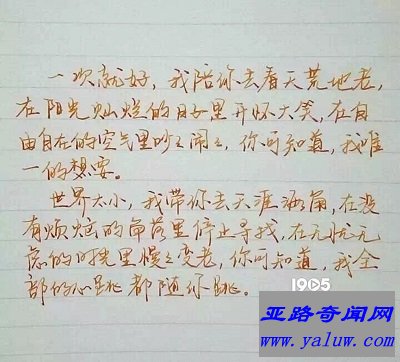 一次就好，我陪你去看天荒地老，
在阳光灿烂的日子里开怀大笑，在自
由自在的空气里吵吵闹闹，你可知道，我唯
一的想要。
世界太小，我带你去天涯海角，在没
有烦恼的角落里停止寻找，在无忧无
虑的时光里慢慢变老，你可知道，我全
部的心跳都随你跳。
1905
亚路奇闻网
www.yaluw.com